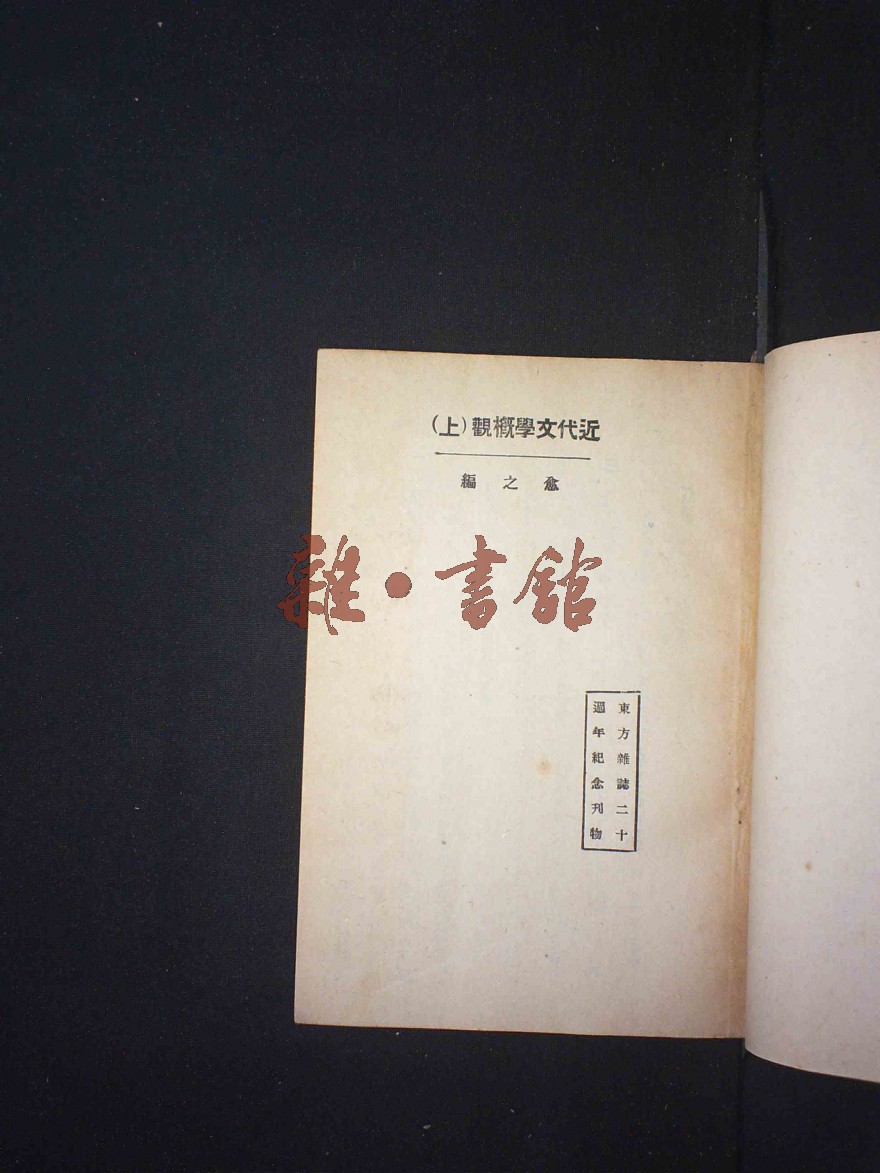 近代文學概觀(上)
愈之編
雜·書館
東方雜誌二十
週年紀念刊物